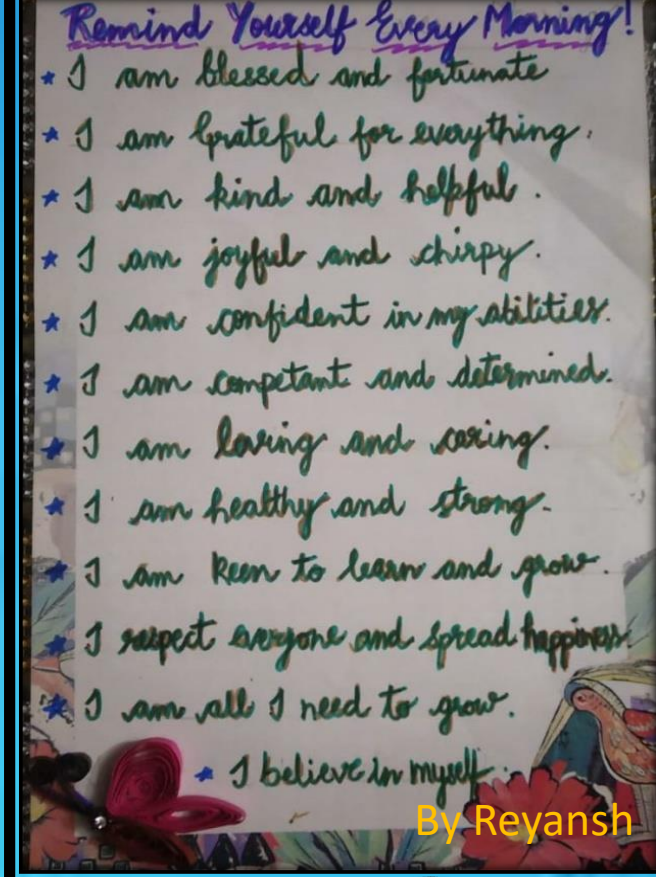 Remind Yourself Every Morning!
★ I am blessed and fortunate
★ I am Grateful for everything.
★ I am kind and helpful.
★ I am joyful and chirpy.
★ I am confident in my abilities.
★ I am competant and determined.
★ I am loving and caring.
★ I am healthy and strong.
★ I am keen to learn and grow.
★ I respect everyone and spread happiness.
★ I am all I need to grow.
★ I believe in myself.
By Reyansh